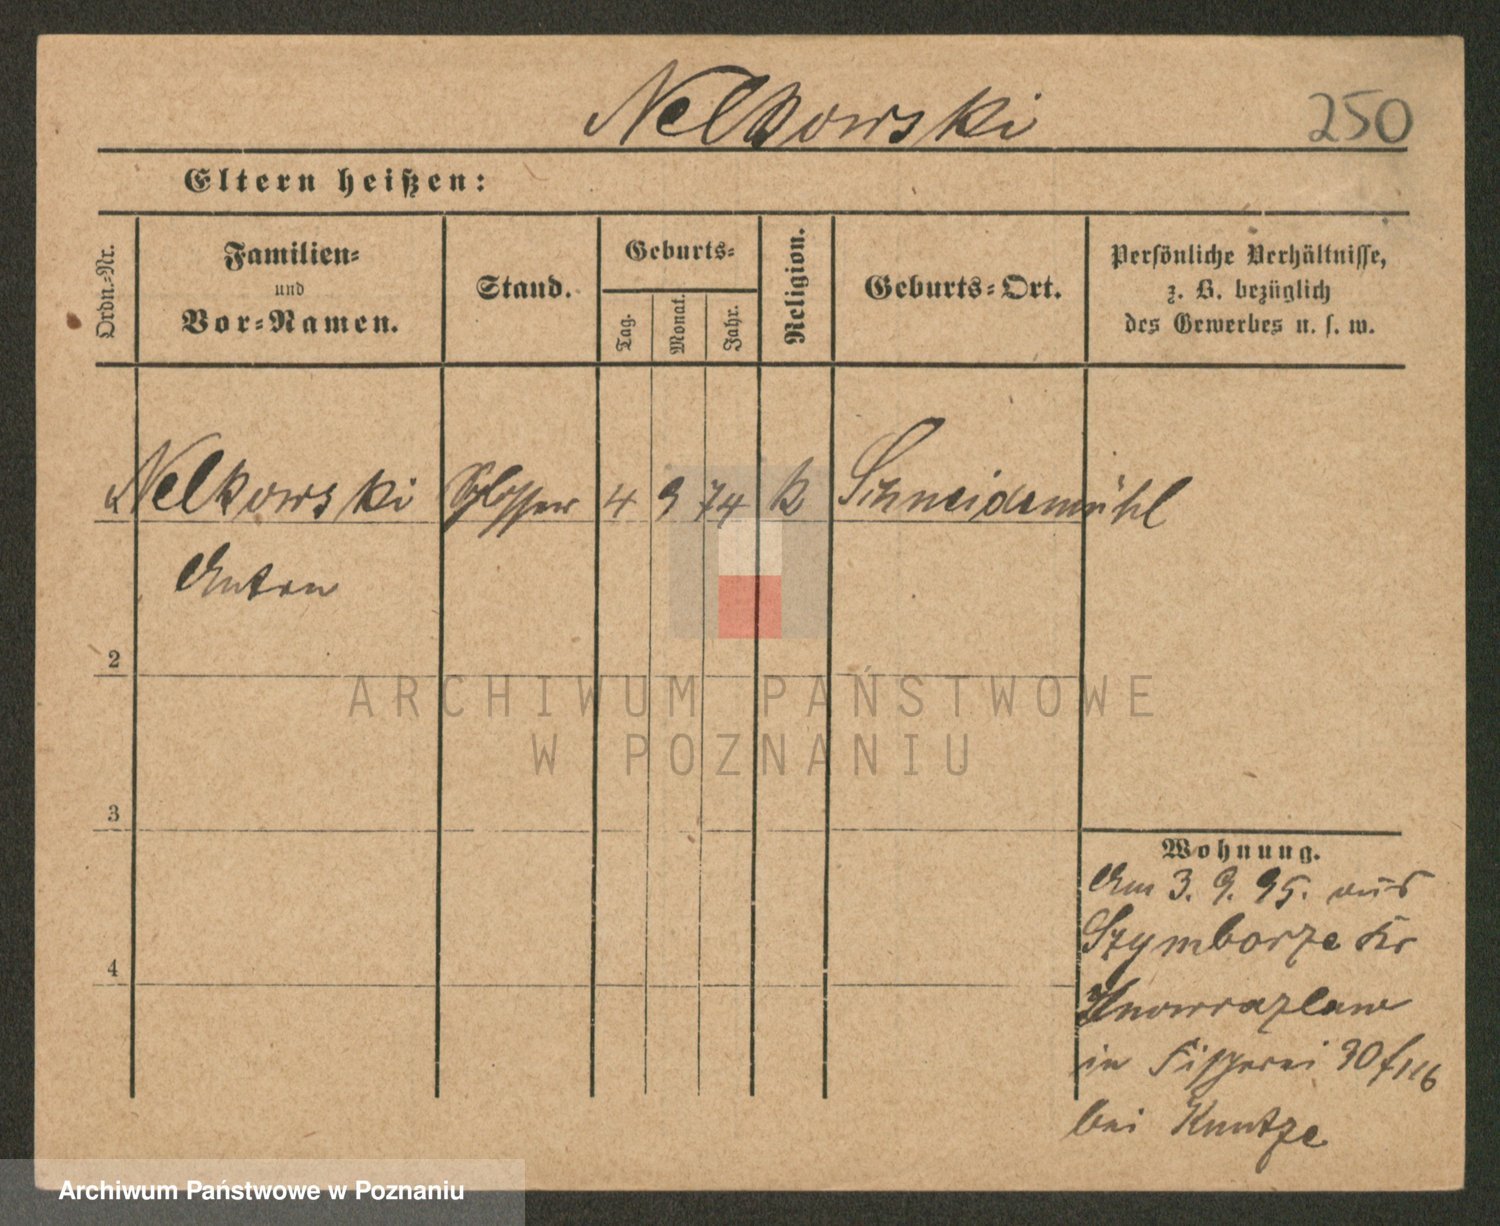 Nelkowski 250
Eltern heißen:
Ordn.-Nr.
Familien-
und
Vor-Namen.
Stand.
Geburts-
Tag.
Monat.
Jahr.
Religion.
Geburts-Ort.
Persönliche Verhältnisse,
z. B. bezüglich
des Gewerbes u. s. w.
Nelkowski Schlosser 4 9 74 k Schneidemühl
Anton
2
3
4
Wohnung.
Am 3. 9. 95. aus
Szymborze Kr
Inowrazlaw
in Fischerei
bei Kuntze
ARCHIWUM PAŃSTWOWE
W POZNANIU
Archiwum Państwowe w Poznaniu